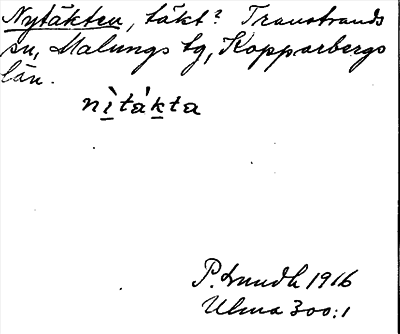 Nytäkten, täkt? Transtrands
sn, Malungs tg, Kopparbergs
län.
nìtákta
P. Lundh 1916
Ulma 300:1